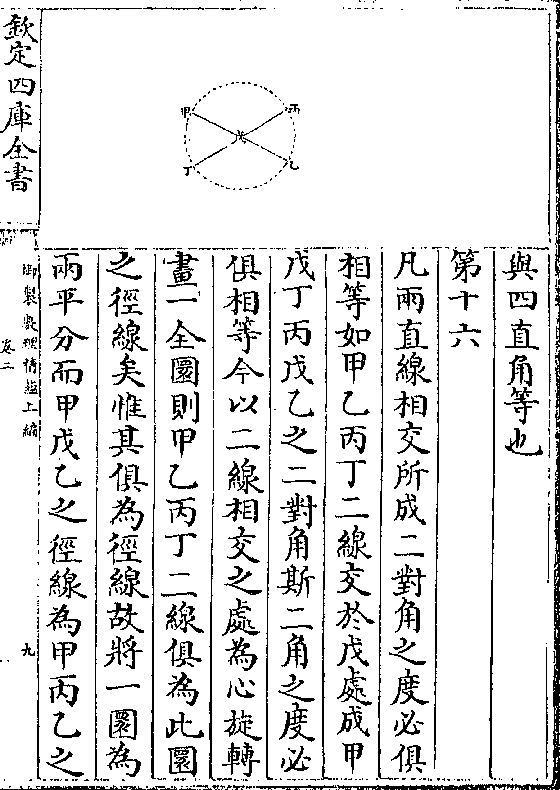 與四直角等也
第十六
凡兩直線相交所成二對角之度必俱
相等如甲乙丙丁二線交於戊處成甲
戊丁丙戊乙之二對角斯二角之度必
俱相等今以二線相交之處為心旋轉
畫一全圜則甲乙丙丁二線俱為此圜
之徑線矣惟其俱為徑線故將一圜為
兩平分而甲戊乙之徑線為甲丙乙之
甲
丙
戊
丁
乙
欽定四庫全書
御製數理精蘊上編
卷二
九